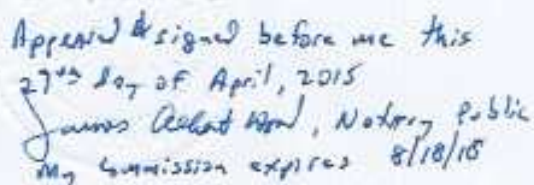 Appeared & signed before me this
27th day of April, 2015
James , Notary Public
My commission expires 8/18/18